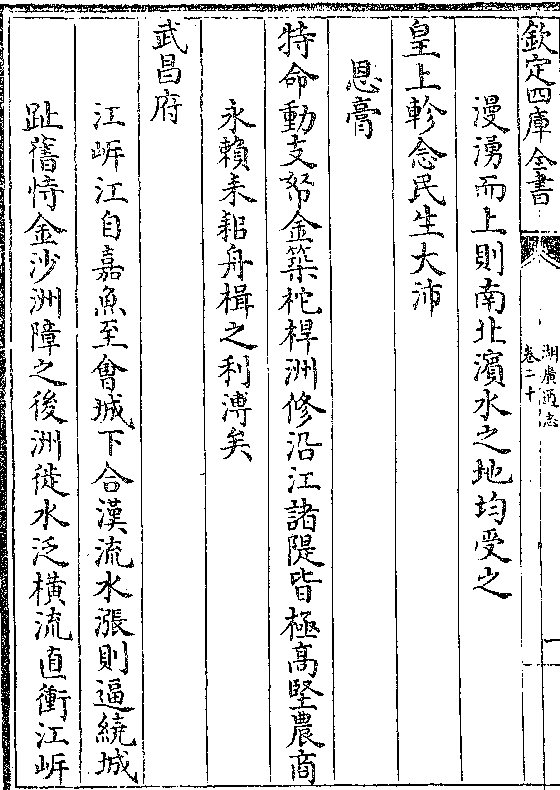 欽定四庫全書
湖廣通志
卷二十
一
漫湧而上則南北濱水之地均受之
皇上軫念民生大沛
恩膏
特命動支帑金築柁桿洲修沿江諸隄皆極高堅農商
永賴耒耜舟楫之利溥矣
武昌府
江岍江自嘉魚至會城下合漢流水漲則逼繞城
趾舊恃金沙洲障之後洲徙水泛橫流直衝江岍